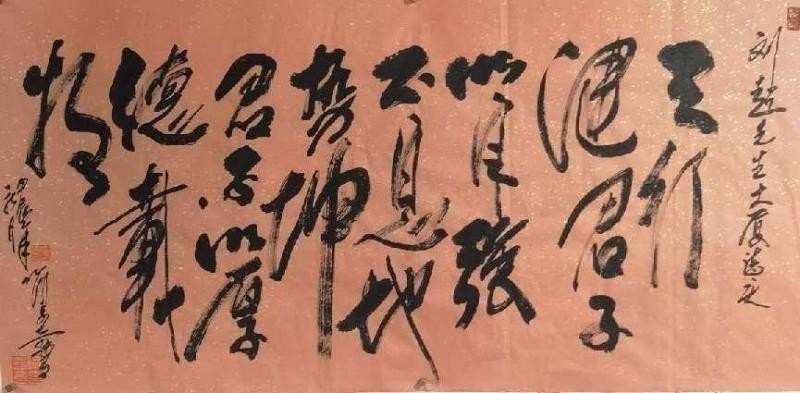 刘超先生
天行
健君子
以自强
不息地
势坤
君子以厚
德載
物